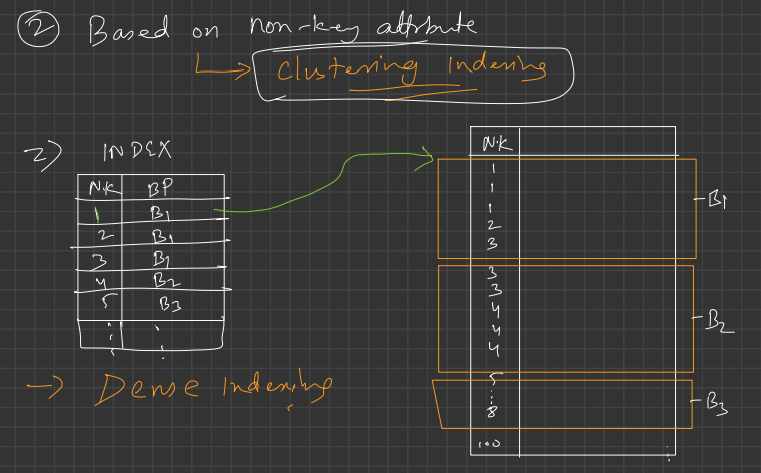 ② Based on non-key attribute
↳ Clustering Indexing
2) INDEX
N.K BP
1 B1
2 B1
3 B1
4 B2
5 B3
⋮ ⋮
→ Dense Indexing
N.K
1
1
1
2
3
B1
3
3
4
4
4
B2
5
⋮
8
B3
100 ⋮